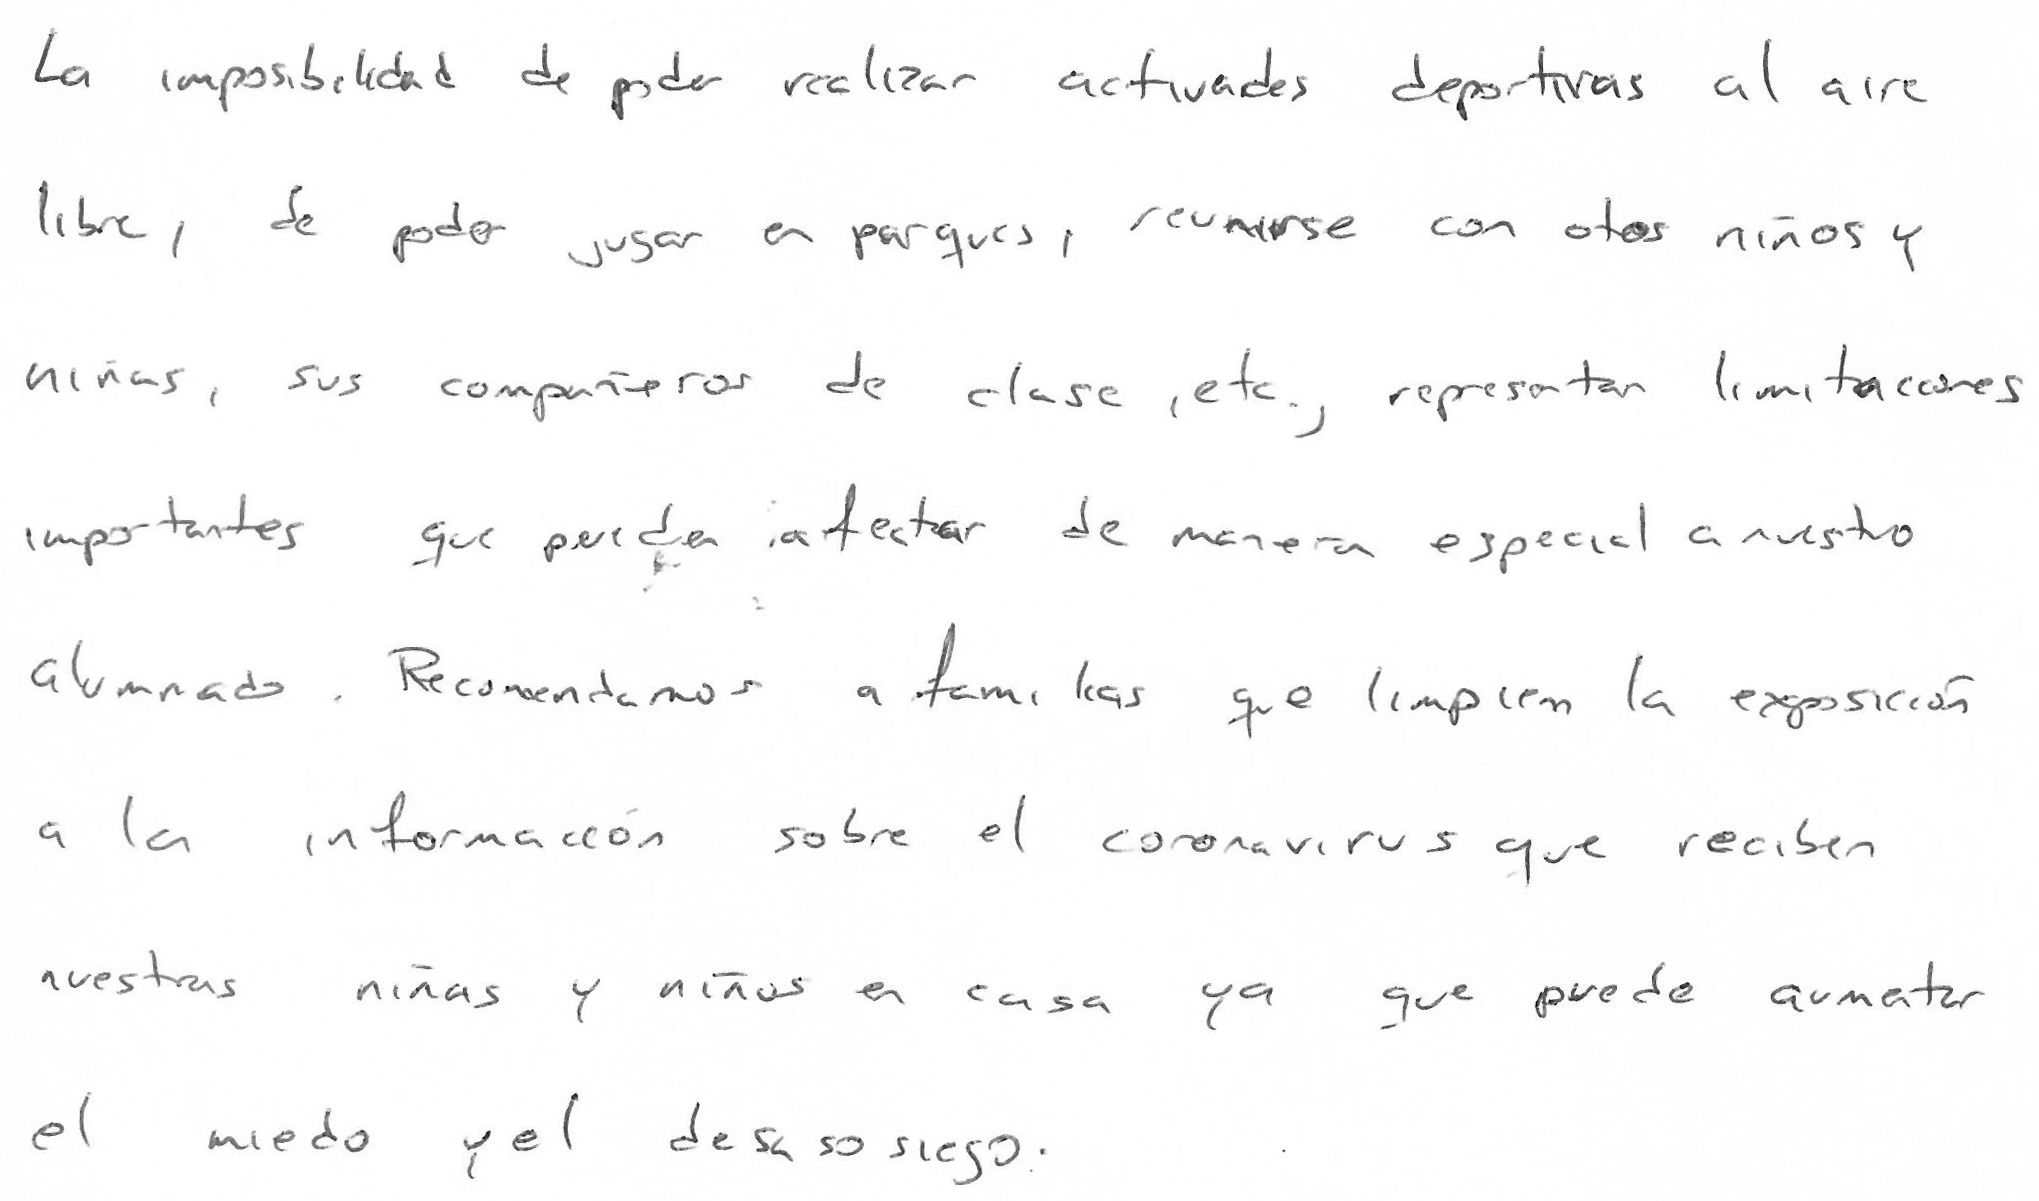 La imposibilidad de poder realizar activades deportivas al aire
libre, de poder jugar en parques, reunirse con otros niños y
niñas, sus compañeros de clase, etc., representan limitaciones
importantes que pueden afectar de manera especial a nuestro
alumnado. Recomendamos a familias que limpien la exposición
a la información sobre el coronavirus que reciben
nuestras niñas y niños en casa ya que puede aumentar
el miedo y el desasosiego.